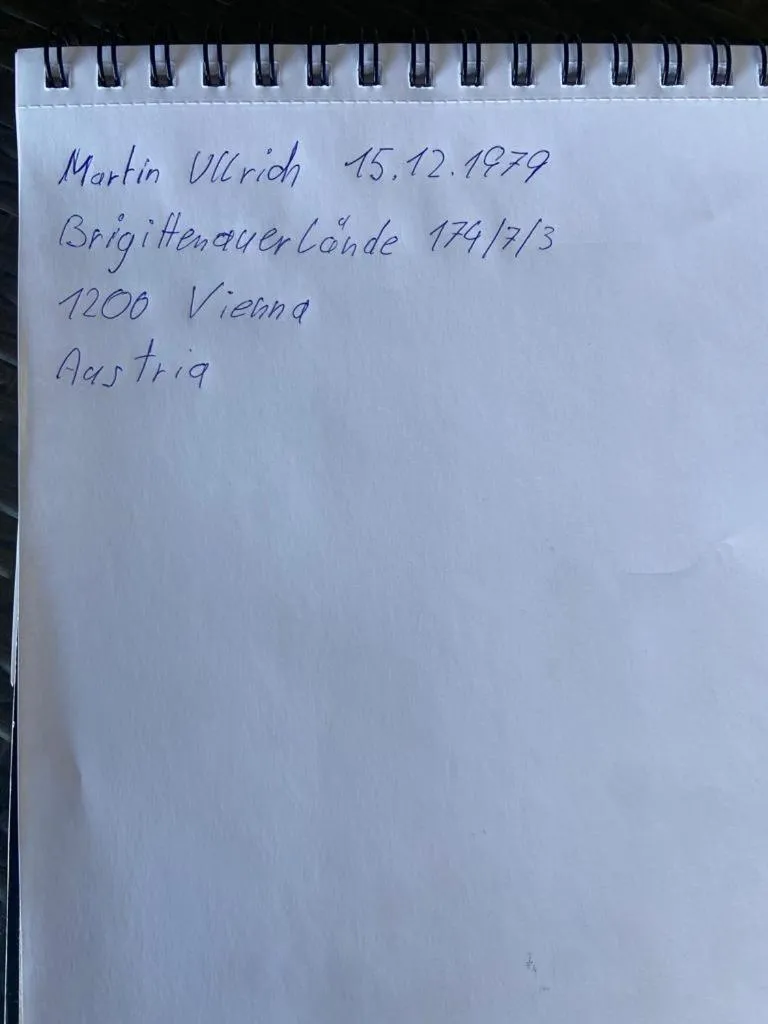 Martin Ullrich 15.12.1979
Brigittenauerlände 174/7/3
1200 Vienna
Austria